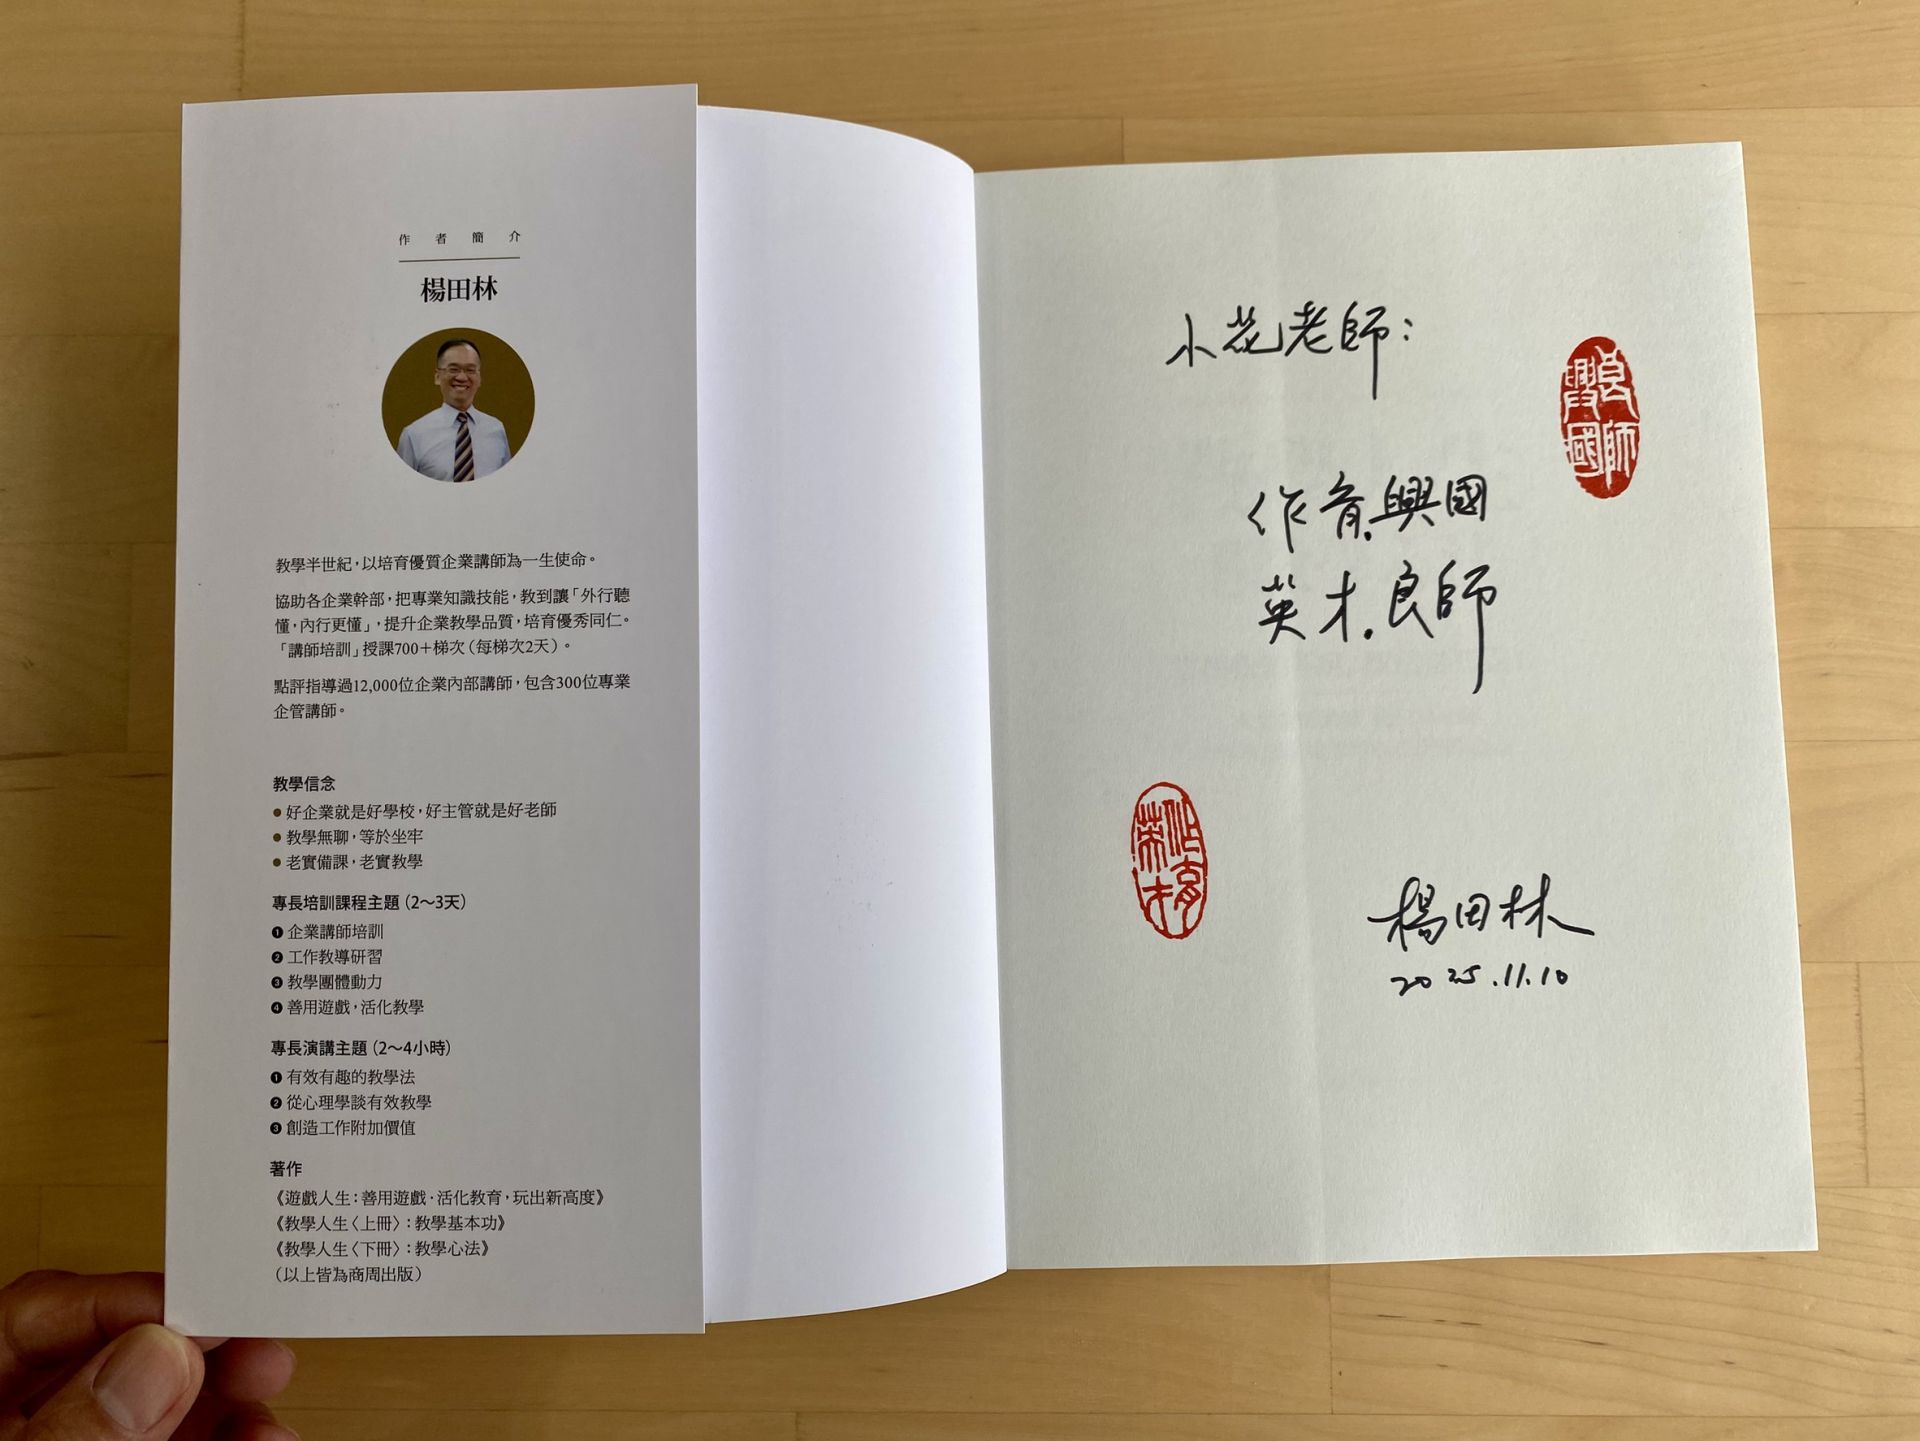 作者簡介
楊田林
教學半世紀，以培育優質企業講師為一生使命。
協助各企業幹部，把專業知識技能，教到讓「外行聽
懂，內行更懂」，提升企業教學品質，培育優秀同仁。
「講師培訓」授課700＋梯次（每梯次2天）。
點評指導過12,000位企業內部講師，包含300位專業
企管講師。
教學信念
● 好企業就是好學校，好主管就是好老師
● 教學無聊，等於坐牢
● 老實備課，老實教學
專長培訓課程主題（2～3天）
❶ 企業講師培訓
❷ 工作教導研習
❸ 教學團體動力
❹ 善用遊戲，活化教學
專長演講主題（2～4小時）
❶ 有效有趣的教學法
❷ 從心理學談有效教學
❸ 創造工作附加價值
著作
《遊戲人生：善用遊戲·活化教育，玩出新高度》
《教學人生〈上冊〉：教學基本功》
《教學人生〈下冊〉：教學心法》
（以上皆為商周出版）
小花老師：
作育興國
英才良師
良師興國
作育英才
楊田林
2025.11.10